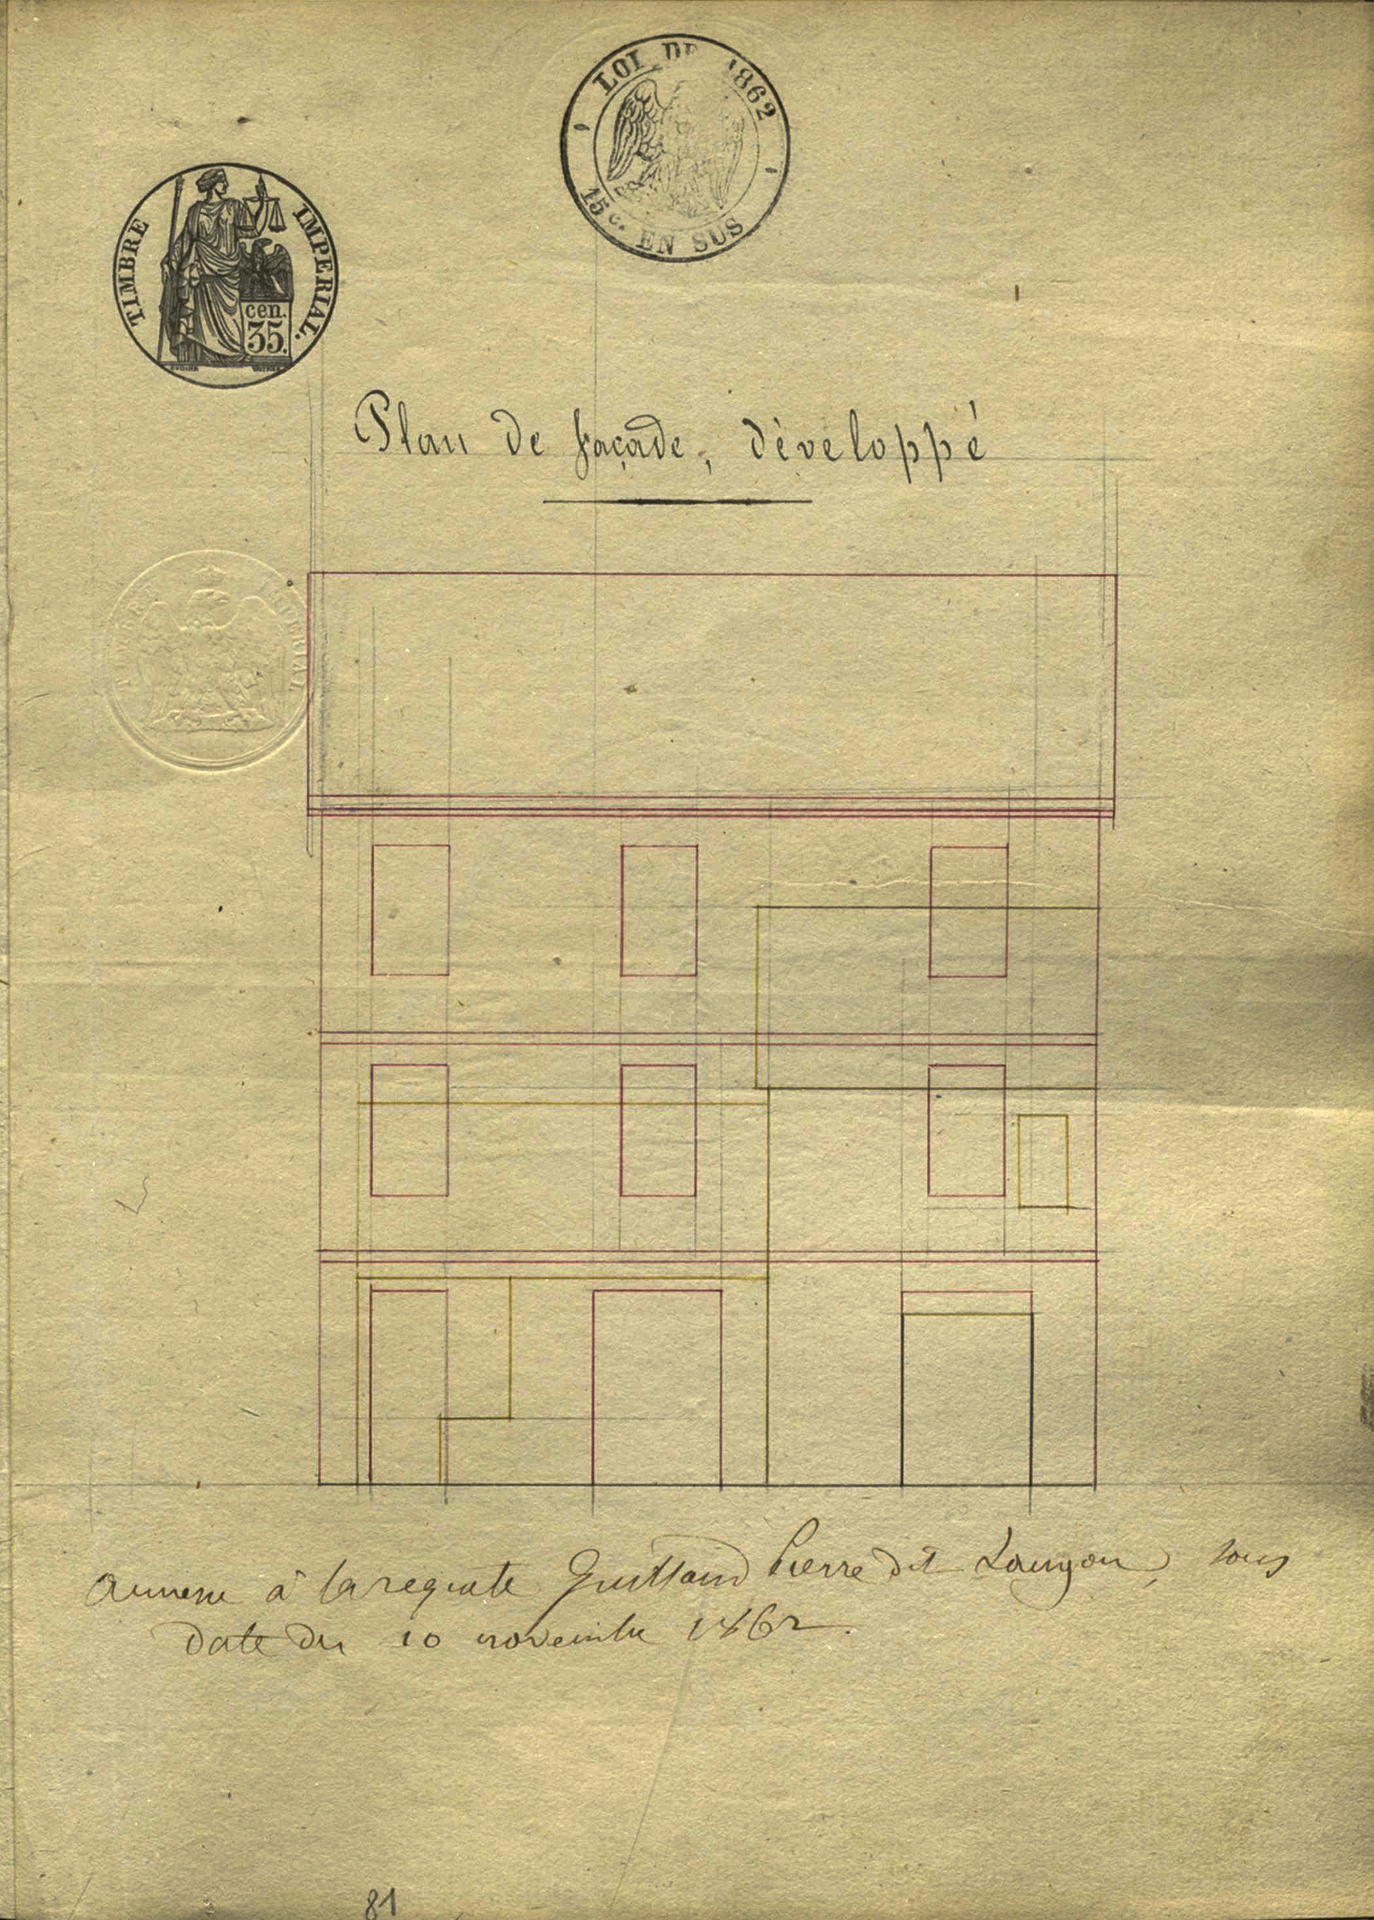 LOI DE 1862
15 c. EN SUS
TIMBRE IMPERIAL.
cen.
35.
Plan de façade, développé
TIMBRE IMPERIAL
annexe à la requete Guittaud Pierre dit Lauzon, sous
date du 10 novembre 1862.
81